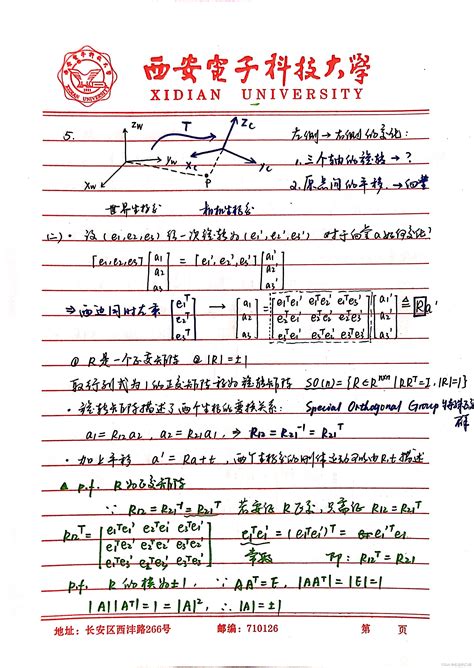 西安电子科技大学
XIDIAN UNIVERSITY
5.
Zw
T
Zc
左侧 → 右侧的变化:
yw
Xc
1. 三个轴的旋转 → ?
Xw
P
Yc
2. 原点间的平移 → 向量
世界坐标系 相机坐标系
(二)· 设 (e1,e2,e3) 经一次旋转为 (e1',e2',e3') 对于向量a如何变化?
[e1,e2,e3] [a1 a2 a3] = [e1',e2',e3'] [a1' a2' a3']
⇒ 两边同时左乘 [e1ᵀ e2ᵀ e3ᵀ] → [a1 a2 a3] = [e1ᵀe1' e1ᵀe2' e1ᵀe3' e2ᵀe1' e2ᵀe2' e2ᵀe3' e3ᵀe1' e3ᵀe2' e3ᵀe3'] [a1' a2' a3'] ≜ Ra'
@ R是一个正交矩阵 @ |R|=±1
取行列式为1的正交矩阵称为旋转矩阵 SO(n)={R∈Rⁿˣⁿ|RRᵀ=I,|R|=1}
· 旋转矩阵描述了两个坐标的变换关系: Special Orthogonal Group 特殊正交群
a1=R12a2, a2=R21a1, ⇒ R12=R21⁻¹=R21ᵀ
· 加上平移 a'=Ra+t, 两个坐标系的刚体运动可以由R,t描述
p.f. R为正交矩阵
∵ R12=R21⁻¹=R21ᵀ 若要证R正交,只需证 R12=R21ᵀ
R12ᵀ= [e1ᵀe1' e2ᵀe1' e3ᵀe1' e1ᵀe2' e2ᵀe2' e3ᵀe2' e1ᵀe3' e2ᵀe3' e3ᵀe3'] e1ᵀe1' = (e1ᵀe1')ᵀ = e1'ᵀe1
常数 即: R12ᵀ=R21
p.f. R的模为±1, ∵ AAᵀ=E, |AAᵀ|=|E|=1
|A||Aᵀ|=1=|A|², ∴ |A|=±1
地址:长安区西沣路266号 邮编:710126 第 页